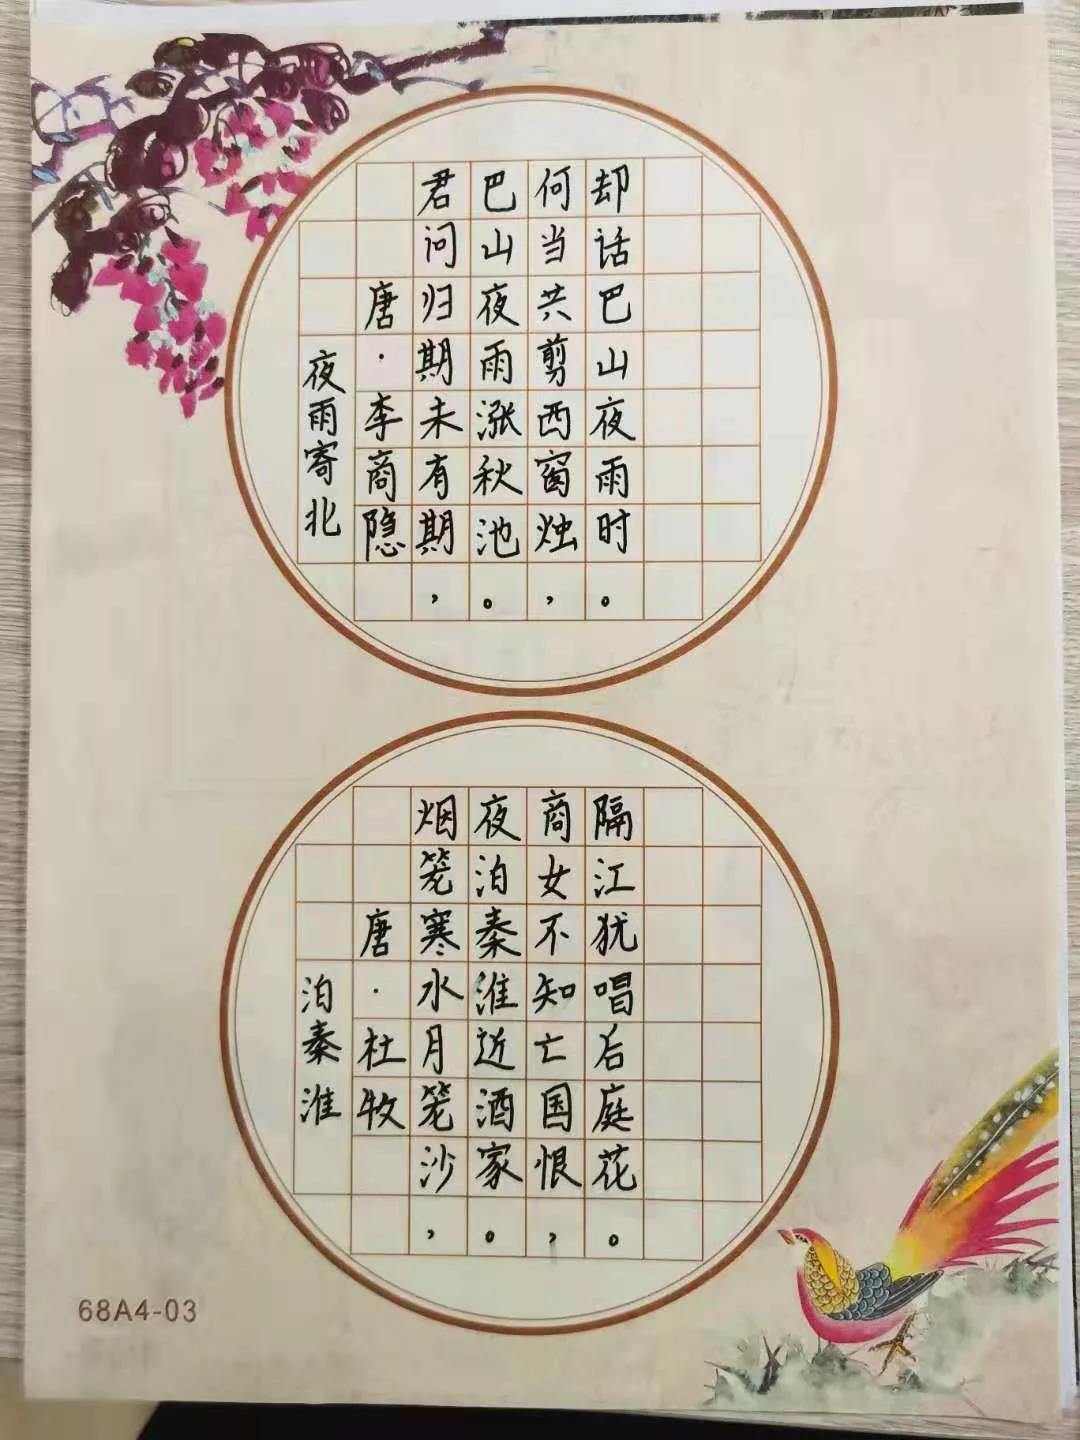 夜雨寄北
唐·李商隐
君问归期未有期，
巴山夜雨涨秋池。
何当共剪西窗烛，
却话巴山夜雨时。
泊秦淮
唐·杜牧
烟笼寒水月笼沙，
夜泊秦淮近酒家。
商女不知亡国恨，
隔江犹唱后庭花。
68A4-03